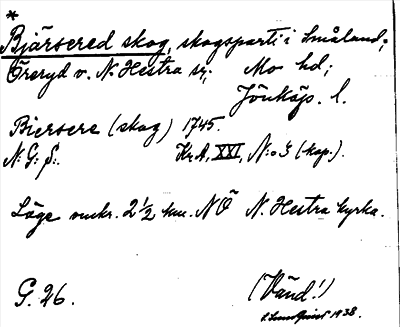 *
Bjärsered skog, skogsparti i Småland;
Öreryd v. N. Hestra sn; Mo hd;
Jönköp. l.
Biersere (skog) 1745.
N: G: S:. Kr A, XXI, N:o 3 (kop.).
Läge omkr. 2 1/2 km. NÖ N. Hestra kyrka.
G. 26. (Vänd!)
1938.